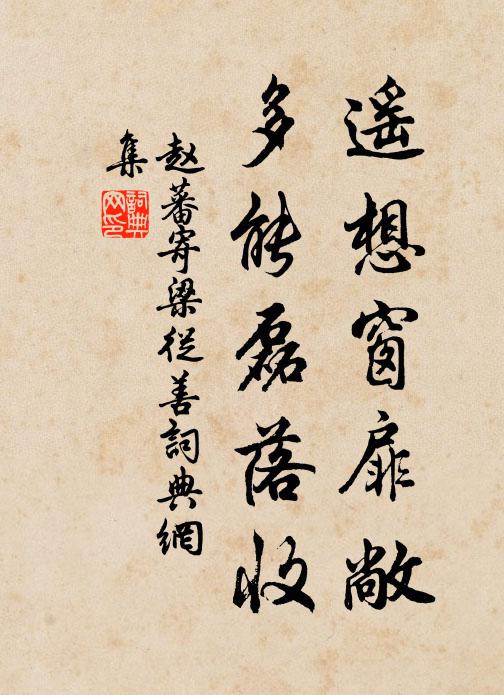 遥想窗扉敞
多能磊落收
赵蕃寄梁從善詞典網
集
詞典
网印